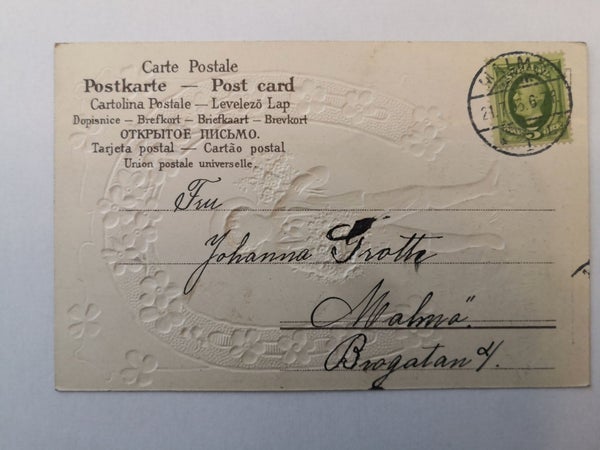 Carte Postale
Postkarte — Post card
Cartolina Postale — Levelező Lap
Dopisnice — Brefkort — Briefkaart — Brevkort
ОТКРЫТОЕ ПИСЬМО.
Tarjeta postal — Cartão postal
Union postale universelle.
MALMÖ
5
Fru
Johanna Grotte
Malmö.
Brogatan 4.